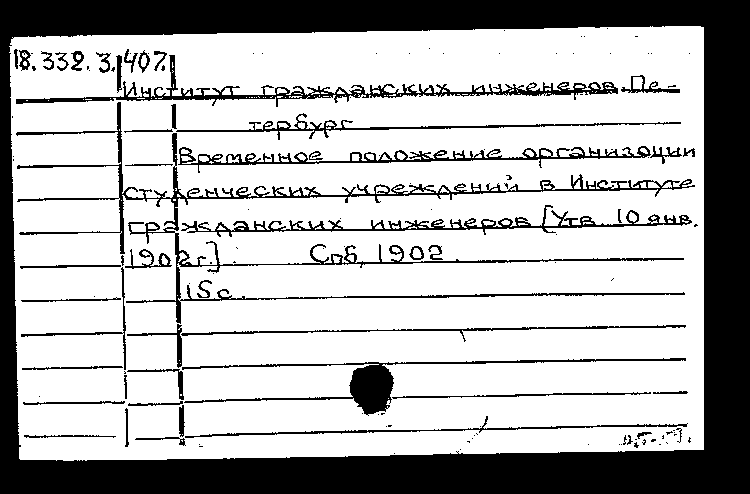 18.332.3.407.
Институт гражданских инженеров. Пе-
тербург
Временное положение организации
студенческих учреждений в Институте
гражданских инженеров [Утв. 10 янв.
1902 г.]. Спб, 1902.
15 с.